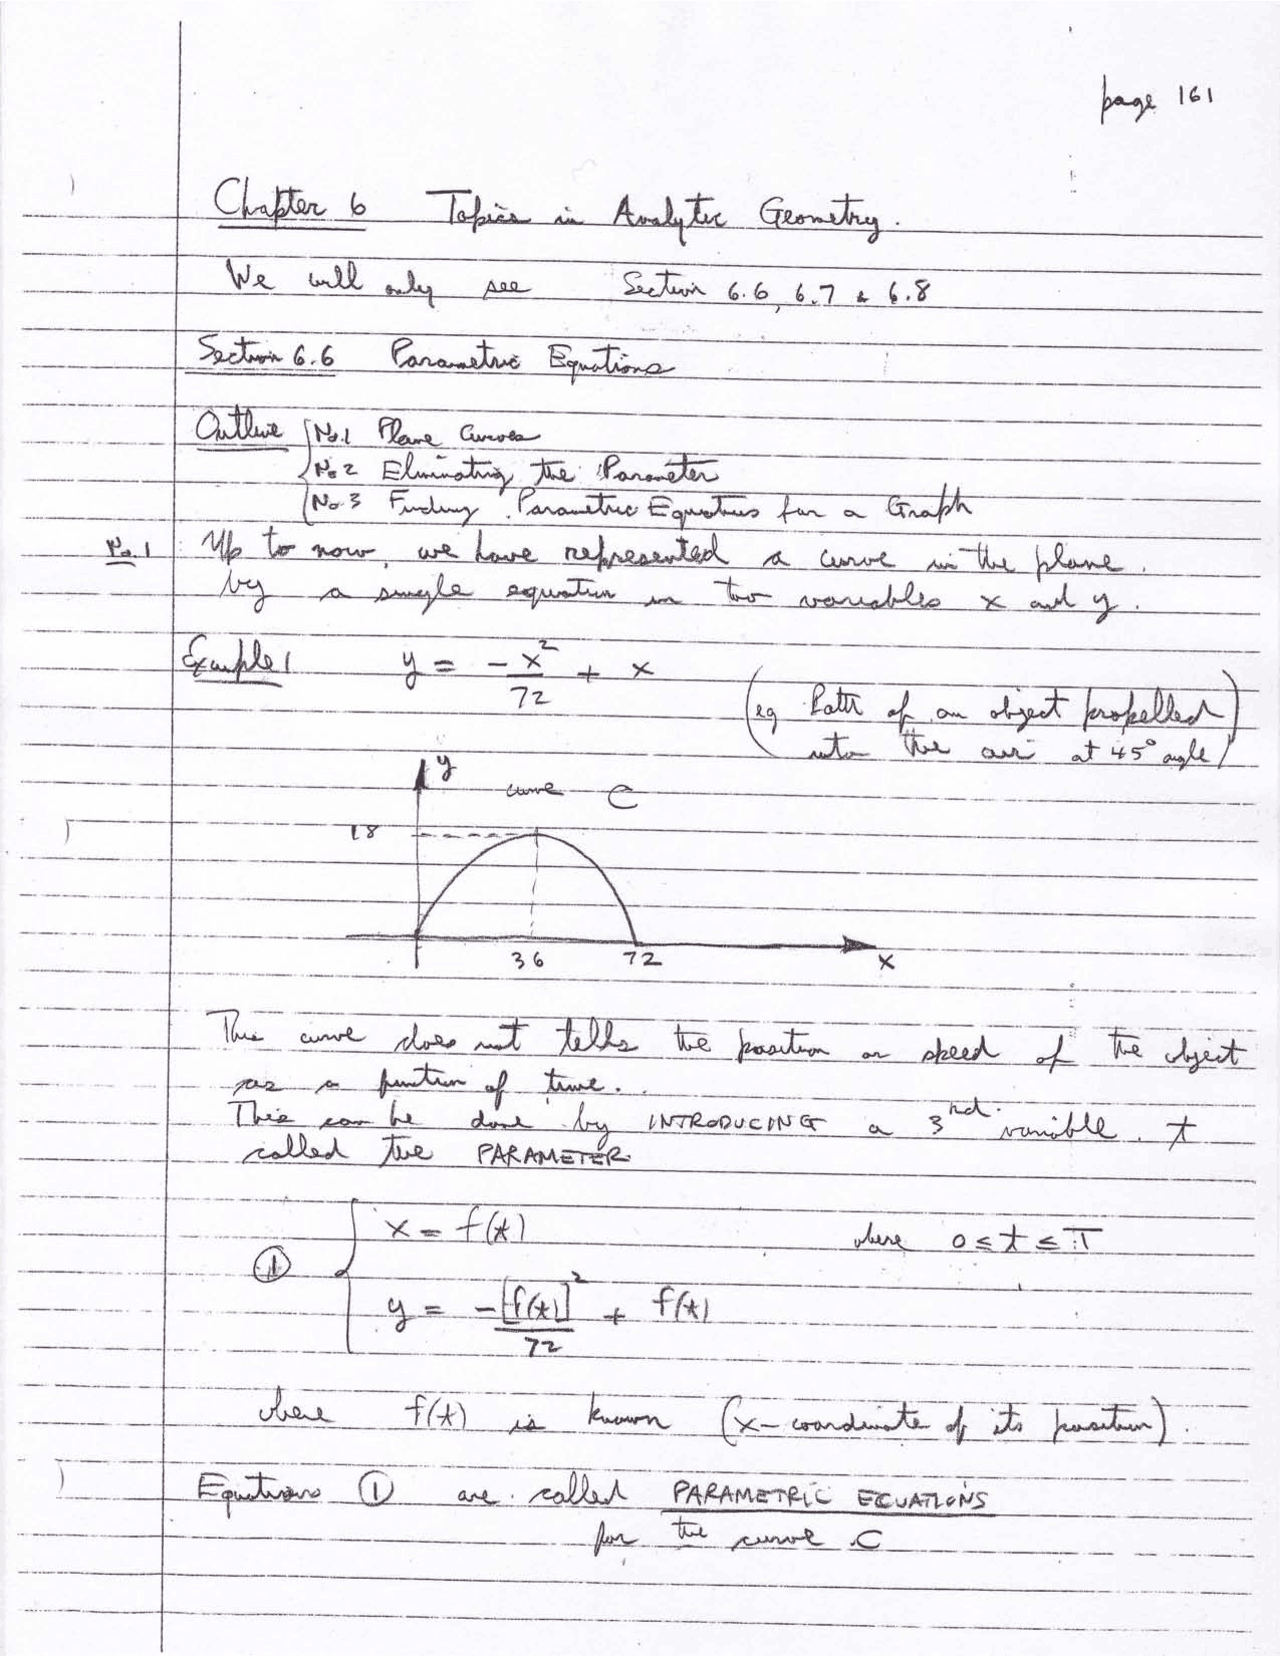 page 161
Chapter 6 Topics in Analytic Geometry.
We will only see Section 6.6, 6.7 & 6.8
Section 6.6 Parametric Equations
Outline { No.1 Plane Curves
No.2 Eliminating the Parameter
No.3 Finding Parametric Equations for a Graph
No.1 Up to now, we have represented a curve in the plane
by a single equation in two variables x and y.
Example 1 y = -x²/72 + x
(eg Path of an object propelled
into the air at 45° angle)
y
curve C
18
36 72 x
This curve does not tells the position or speed of the object
as a function of time.
This can be done by INTRODUCING a 3rd variable t
called the PARAMETER
① { x = f(t) where 0 ≤ t ≤ π
y = -[f(t)]²/72 + f(t)
where f(t) is known (x-coordinate of its position).
Equations ① are called PARAMETRIC EQUATIONS
for the curve C